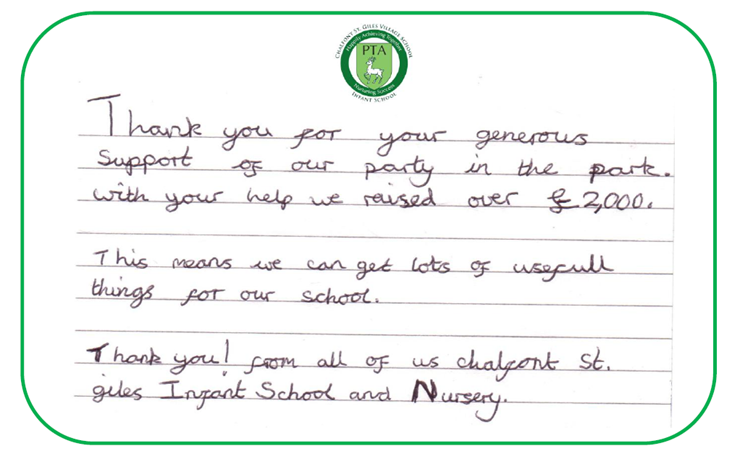 CHALFONT ST. GILES VILLAGE SCHOOL
PTA
Nurturing Success
INFANT SCHOOL
Thank you for your generous
Support of our party in the park.
with your help we raised over £2,000.
This means we can get lots of usefull
things for our school.
Thank you! from all of us chalfont St.
giles Infant School and Nursery.